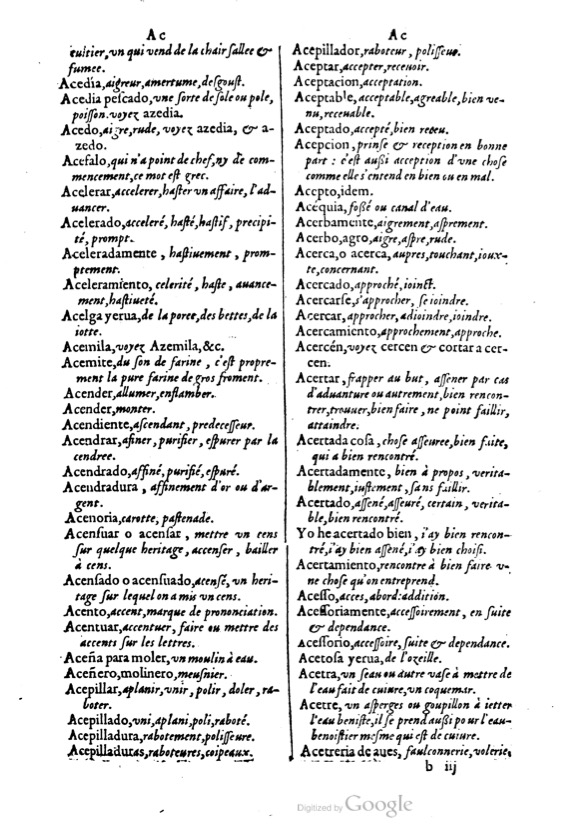 A c
cultier, vn qui vend de la chair sallee &
fumee.
Acedia, aigreur, amertume, desgoust.
Acedia pescado, vne sorte de sole ou pole,
poisson. voyez azedia.
Acedo, aigre, rude, voyez azedia, & a-
zedo.
Acefalo, qui n'a point de chef, ny de com-
mencement, ce mot est grec.
Acelerar, accelerer, haster vn affaire, l'ad-
uancer.
Acelerado, acceleré, hasté, hastif, precipi-
té, prompt.
Aceleradamente, hastiuement, prom-
ptement.
Aceleramiento, celerité, haste, auance-
ment, hastiueté.
Acelga yerua, de la poree, des bettes, de la
iotte.
Acemila, voyez Azemila, &c.
Acemite, du son de farine, c'est propre-
ment la pure farine de gros froment.
Acender, allumer, enflamber.
Acender, monter.
Acendiente, ascendant, predecesseur.
Acendrar, afiner, purifier, espurer par la
cendree.
Acendrado, affiné, purifié, espuré.
Acendradura, affinement d'or ou d'ar-
gent.
Acenoria, carotte, pastenade.
Acensuar o acensar, mettre vn cens
sur quelque heritage, accenser, bailler
à cens.
Acensado o acensuado, acensé, vn heri-
tage sur lequel on a mis vn cens.
Acento, accent, marque de prononciation.
Acentuar, accentuer, faire ou mettre des
accents sur les lettres.
Aceña para moler, vn moulin à eau.
Aceñero, molinero, meusnier.
Acepillar, aplanir, vnir, polir, doler, ra-
boter.
Acepillado, vni, aplani, poli, raboté.
Acepilladura, rabotement, polisseure.
Acepilladuras, raboteures, coipeaux.
A c
Acepillador, raboteur, polisseur.
Aceptar, accepter, receuoir.
Aceptacion, acceptation.
Aceptable, acceptable, agreable, bien ve-
nu, receuable.
Aceptado, accepté, bien receu.
Acepcion, prinse & reception en bonne
part : c'est aussi acception d'vne chose
comme elle s'entend en bien ou en mal.
Accpto, idem.
Acequia, fossé ou canal d'eau.
Acerbamente, aigrement, asprement.
Acerbo, agro, aigre, aspre, rude.
Acerca, o acerca, aupres, touchant, ioux-
te, concernant.
Acercado, approché, ioinct.
Acercarse, s'approcher, se ioindre.
Acercar, approcher, adioindre, ioindre.
Acercamiento, approchement, approche.
Acercén, voyez cercen & cortar a cer-
cen.
Acertar, frapper au but, assener par cas
d'aduanture ou autrement, bien rencon-
trer, trouuer, bien faire, ne point faillir,
attaindre.
Acertada cosa, chose asseuree, bien faite,
qui a bien rencontré.
Acertadamente, bien à propos, verita-
blement, iustement, sans faillir.
Acertado, assené, asseuré, certain, verita-
ble, bien rencontré.
Yo he acertado bien, i'ay bien rencon-
tré, i'ay bien assené, i'ay bien choisi.
Acertamiento, rencontre à bien faire v-
ne chose qu'on entreprend.
Acesso, acces, abord: addition.
Acessoriamente, accessoirement, en suite
& dependance.
Acessorio, accessoire, suite & dependance.
Acetosa yerua, de l'ozeille.
Acetra, vn seau ou autre vase à mettre de
l'eau fait de cuiure, vn coquemar.
Acetre, vn asperges ou goupillon à ietter
l'eau beniste, il se prend aussi pour l'eau-
benoistier mesme qui est de cuiure.
Acetreria de aues, faulconnerie, volerie,
b iij
Digitized by Google